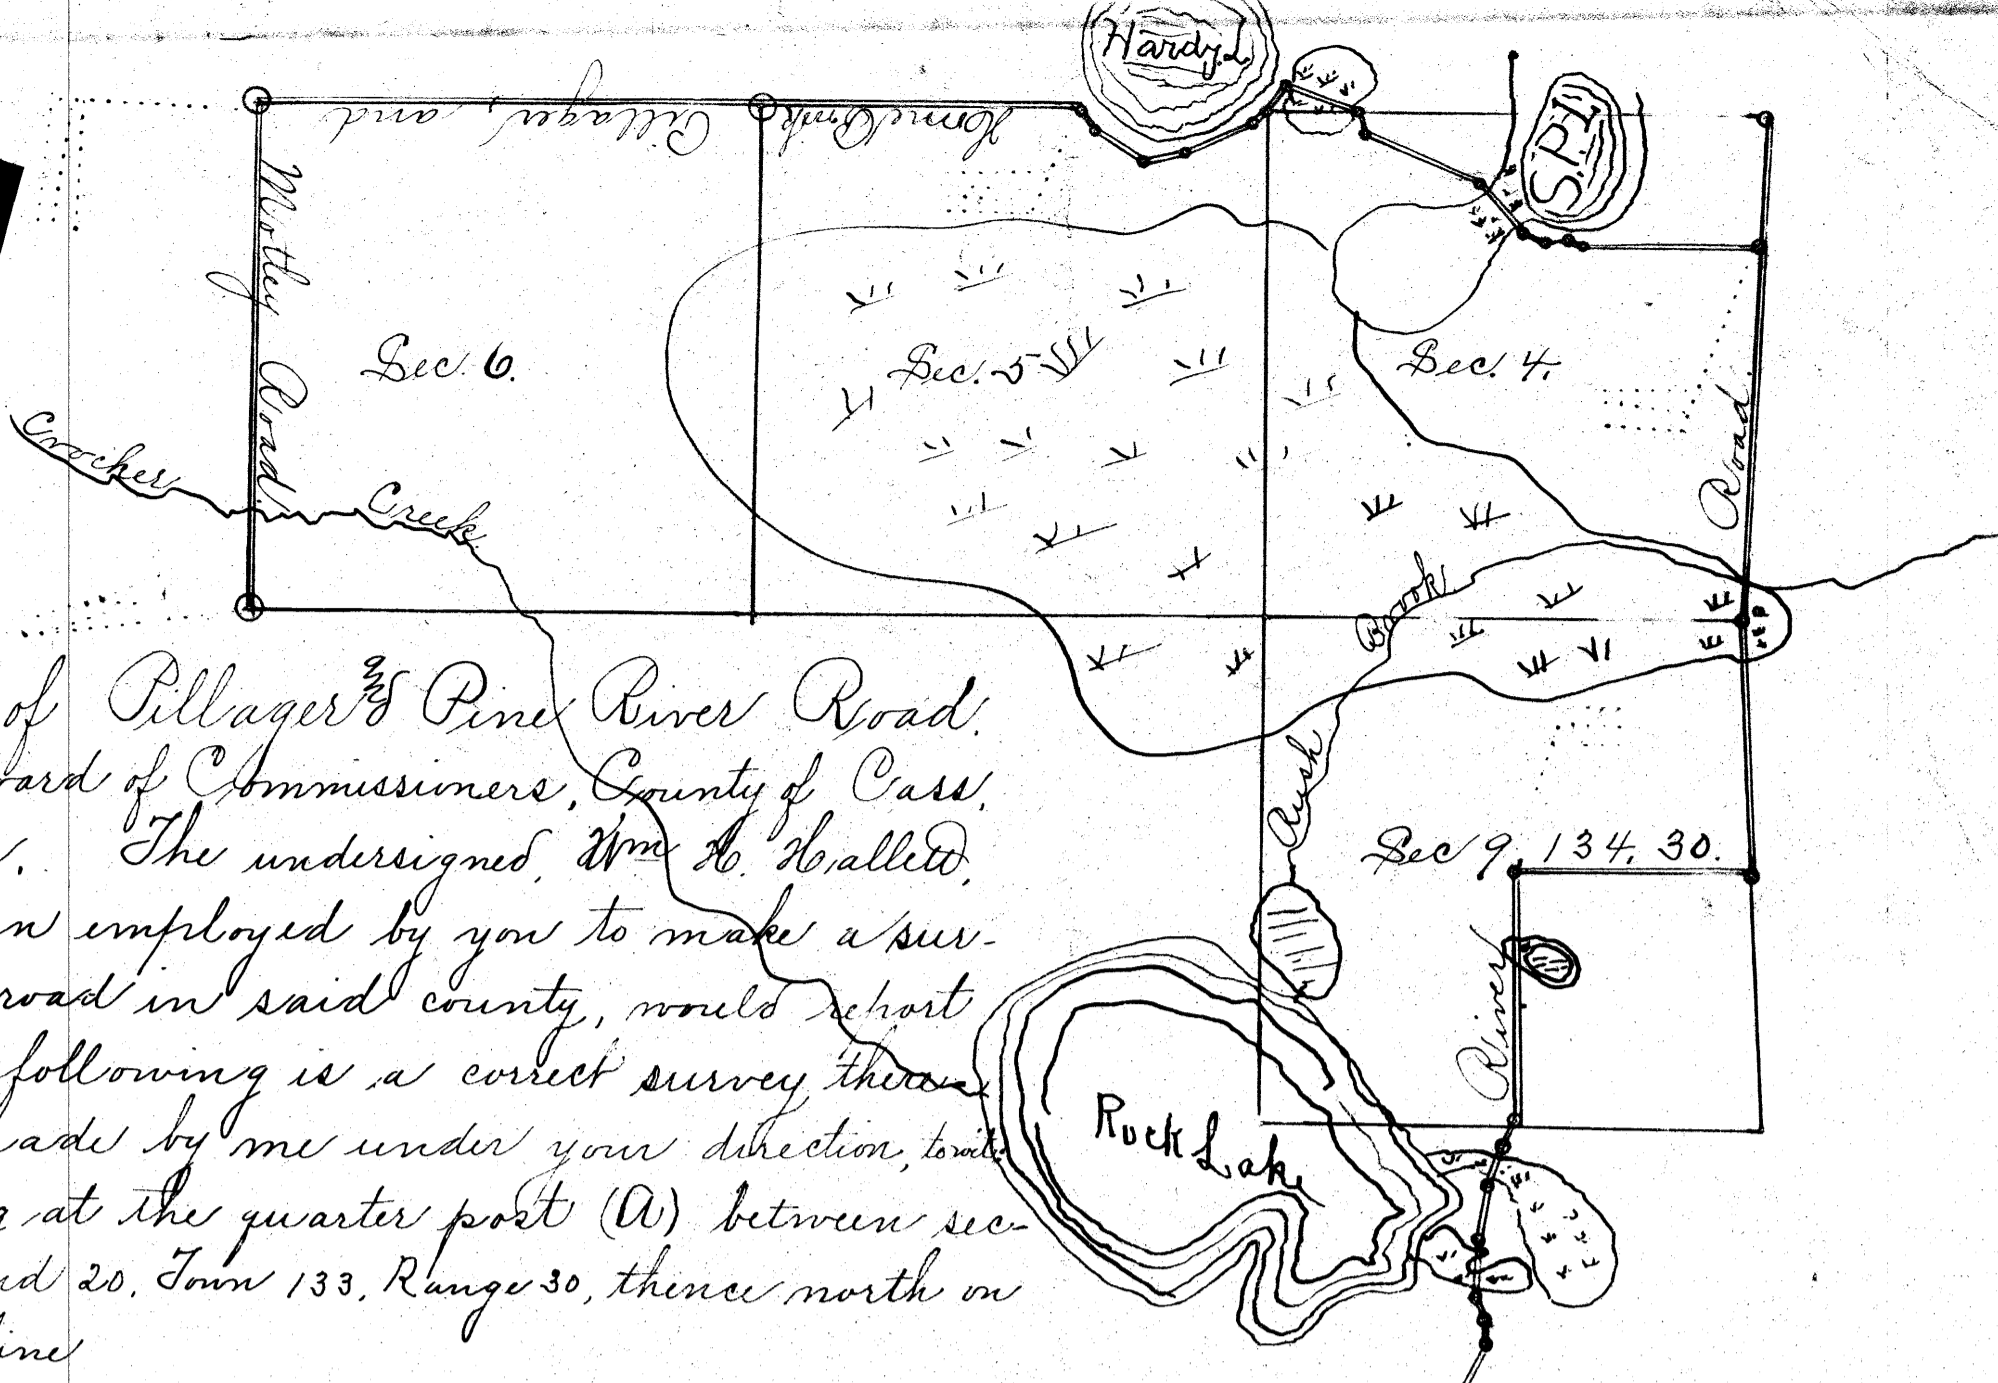 Hardy. L.
S.P.L.
Home Brook
Pillager, and
Motley Road.
Sec. 6.
Sec. 5
Sec. 4.
Road.
Crocker
Creek
Brook
Rush
Sec 9, 134. 30.
River
Rock Lake
of Pillager & Pine River Road.
ard of Commissioners, County of Cass.
The undersigned, Wm H. Hallett,
n employed by you to make a sur-
road in said county, would report
following is a correct survey there
ade by me under your direction, towit:
at the quarter post (A) between sec-
d 20, Town 133, Range 30, thence north on
ine